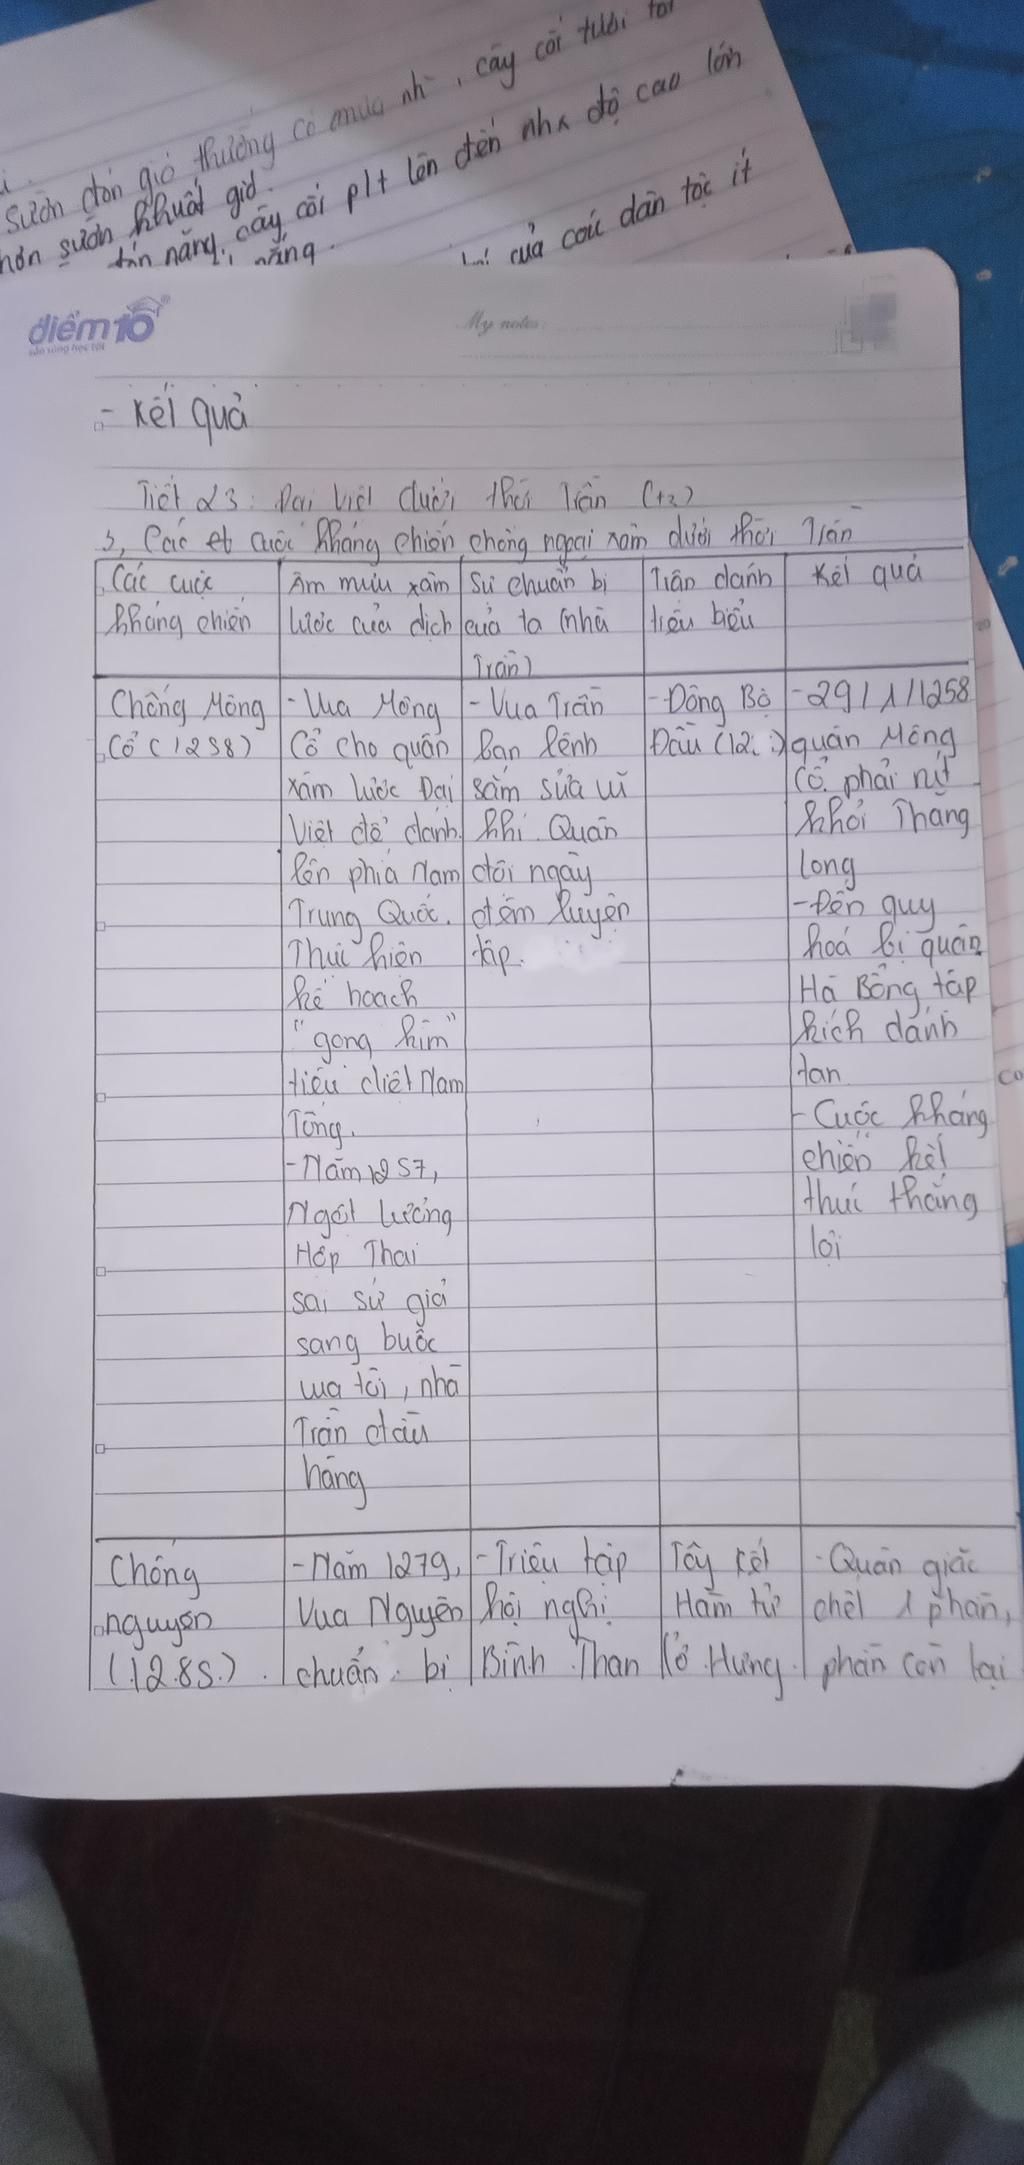 sườn đón gió thường có mưa nh , cây cối tươi tốt
hơn sườn khuất gió.
đón nắng, cây cối p/t lên đến nhx độ cao lớn
nắng.
của các dân tộc ít
điểm 10
sẵn sàng học tốt
My notes:
- Kết quả
Tiết 23: Đại Việt dưới thời Trần (t2)
3, Các cuộc kháng chiến chống ngoại xâm dưới thời Trần
Các cuộc kháng chiến
Âm mưu xâm lược của địch
Sự chuẩn bị của ta (nhà Trần)
Trận đánh tiêu biểu
Kết quả
Chống Mông
Cổ (1258)
- Vua Mông
Cổ cho quân
xâm lược Đại
Việt để đánh
lên phía Nam
Trung Quốc.
Thực hiện
kế hoạch
"gọng kìm"
tiêu diệt Nam
Tống.
- Năm 1257,
Ngột Lương
Hợp Thai
sai sứ giả
sang buộc
vua tôi, nhà
Trần đầu
hàng
- Vua Trần
Ban lệnh
sắm sửa vũ
khí. Quân
đội ngày
đêm luyện
tập.
- Đông Bộ
Đầu
- 29/1/1258
quân Mông
Cổ phải rút
khỏi Thăng
Long
- Đến quy
hoá bị quân
Hà Bổng tập
kích đánh
tan
- Cuộc kháng
chiến kết
thúc thắng
lợi
Chống
nguyên
(1285)
- Năm 1279,
Vua Nguyên
chuẩn bị
- Triệu tập
hội nghị
Bình Than
Tây Kết
Hàm tử
Cổ Hưng
- Quân giặc
chết 1 phần,
phần còn lại